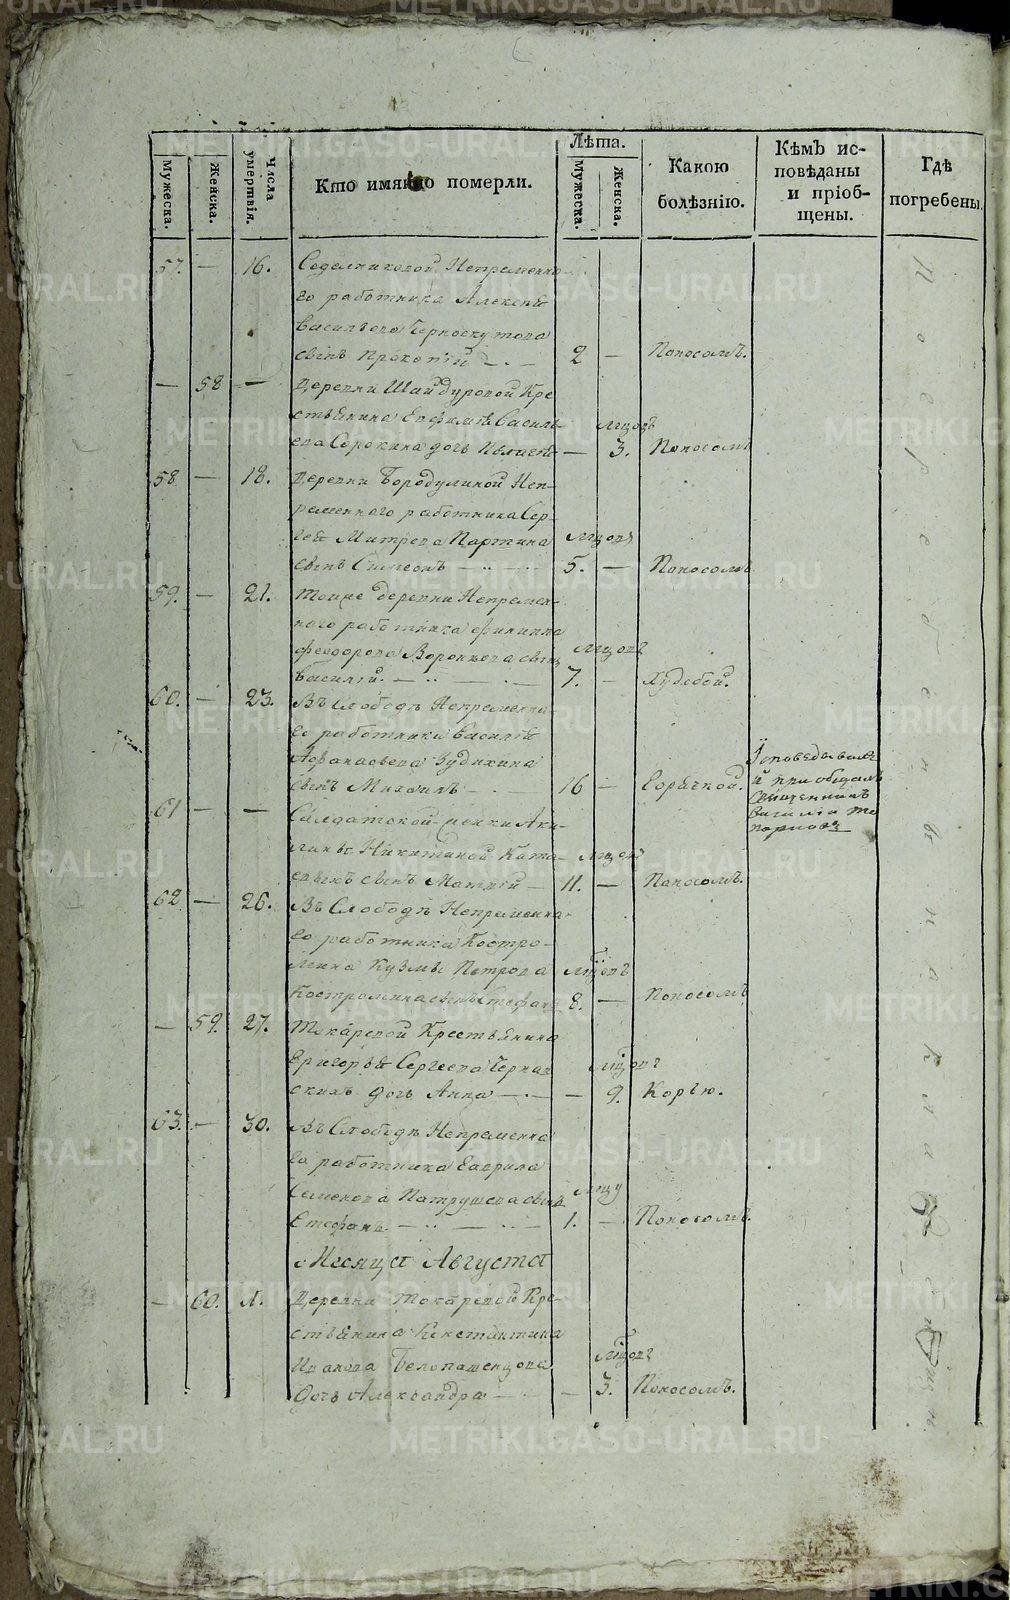 Мужеска.
Женска.
Числа умертвія.
Кто имянно померли.
Лѣта.
Мужеска.
Женска.
Какою болѣзнію.
Кѣмъ исповѣданы и пріобщены.
Гдѣ погребены.
57. — 16. Седелниковой Непременна
го работника Алексѣя
Васильева Черноскутова
сынъ Прокопій — 2 — Поносомъ.
— 58 — Деревни Шайдуровой Кре
стьянина Ефима Василь
ева Сорокина дочь — 3. Поносомъ
58 — 18. Деревни Бородулиной Неп-
ременного работника Сер-
гея Митрева Паршина мцовъ
сынъ Симеонъ — 5. — Поносомъ
59. — 21. Тоиже деревни Непремен-
ного работника Филиппа
Феодорова Воронцова сынъ мцовъ
Василій. — 7. — Худобой.
60. — 23. Въ Слободѣ Непременна
го работника Василья
Афанасьева Зудихина
сынъ Михаилъ — 16 — Горячкой.
Исповедывалъ
и приобщалъ
священникъ
Василій То
порковъ
61 — — Салдатской жонки Аки-
лины Никитиной Ката- мцовъ
евыхъ сынъ Матвей — 11. — Поносомъ.
62 — 26. Въ Слободѣ Непременна-
го работника Костро-
мина Кузмы Петрова мцовъ
Костромина сынъ Стефанъ 8. — Поносомъ
— 59. 27. Токаревой Крестьянина
Григорья Сергеева Черна мцовъ
скихъ дочь Анна — 9. Корью.
63. — 30. Въ Слободѣ Непременна
го работника Гаврила
Семенова Патрушева сынъ мцу
Стефанъ. — 1. — Поносомъ.
Месяца Августа
— 60. 1. Деревни Токаревой Кре-
стьянина Константина
Иванова Белопашенцова мцовъ
Дочь Александра — 3. Поносомъ.
METRIKI.GASO-URAL.RU